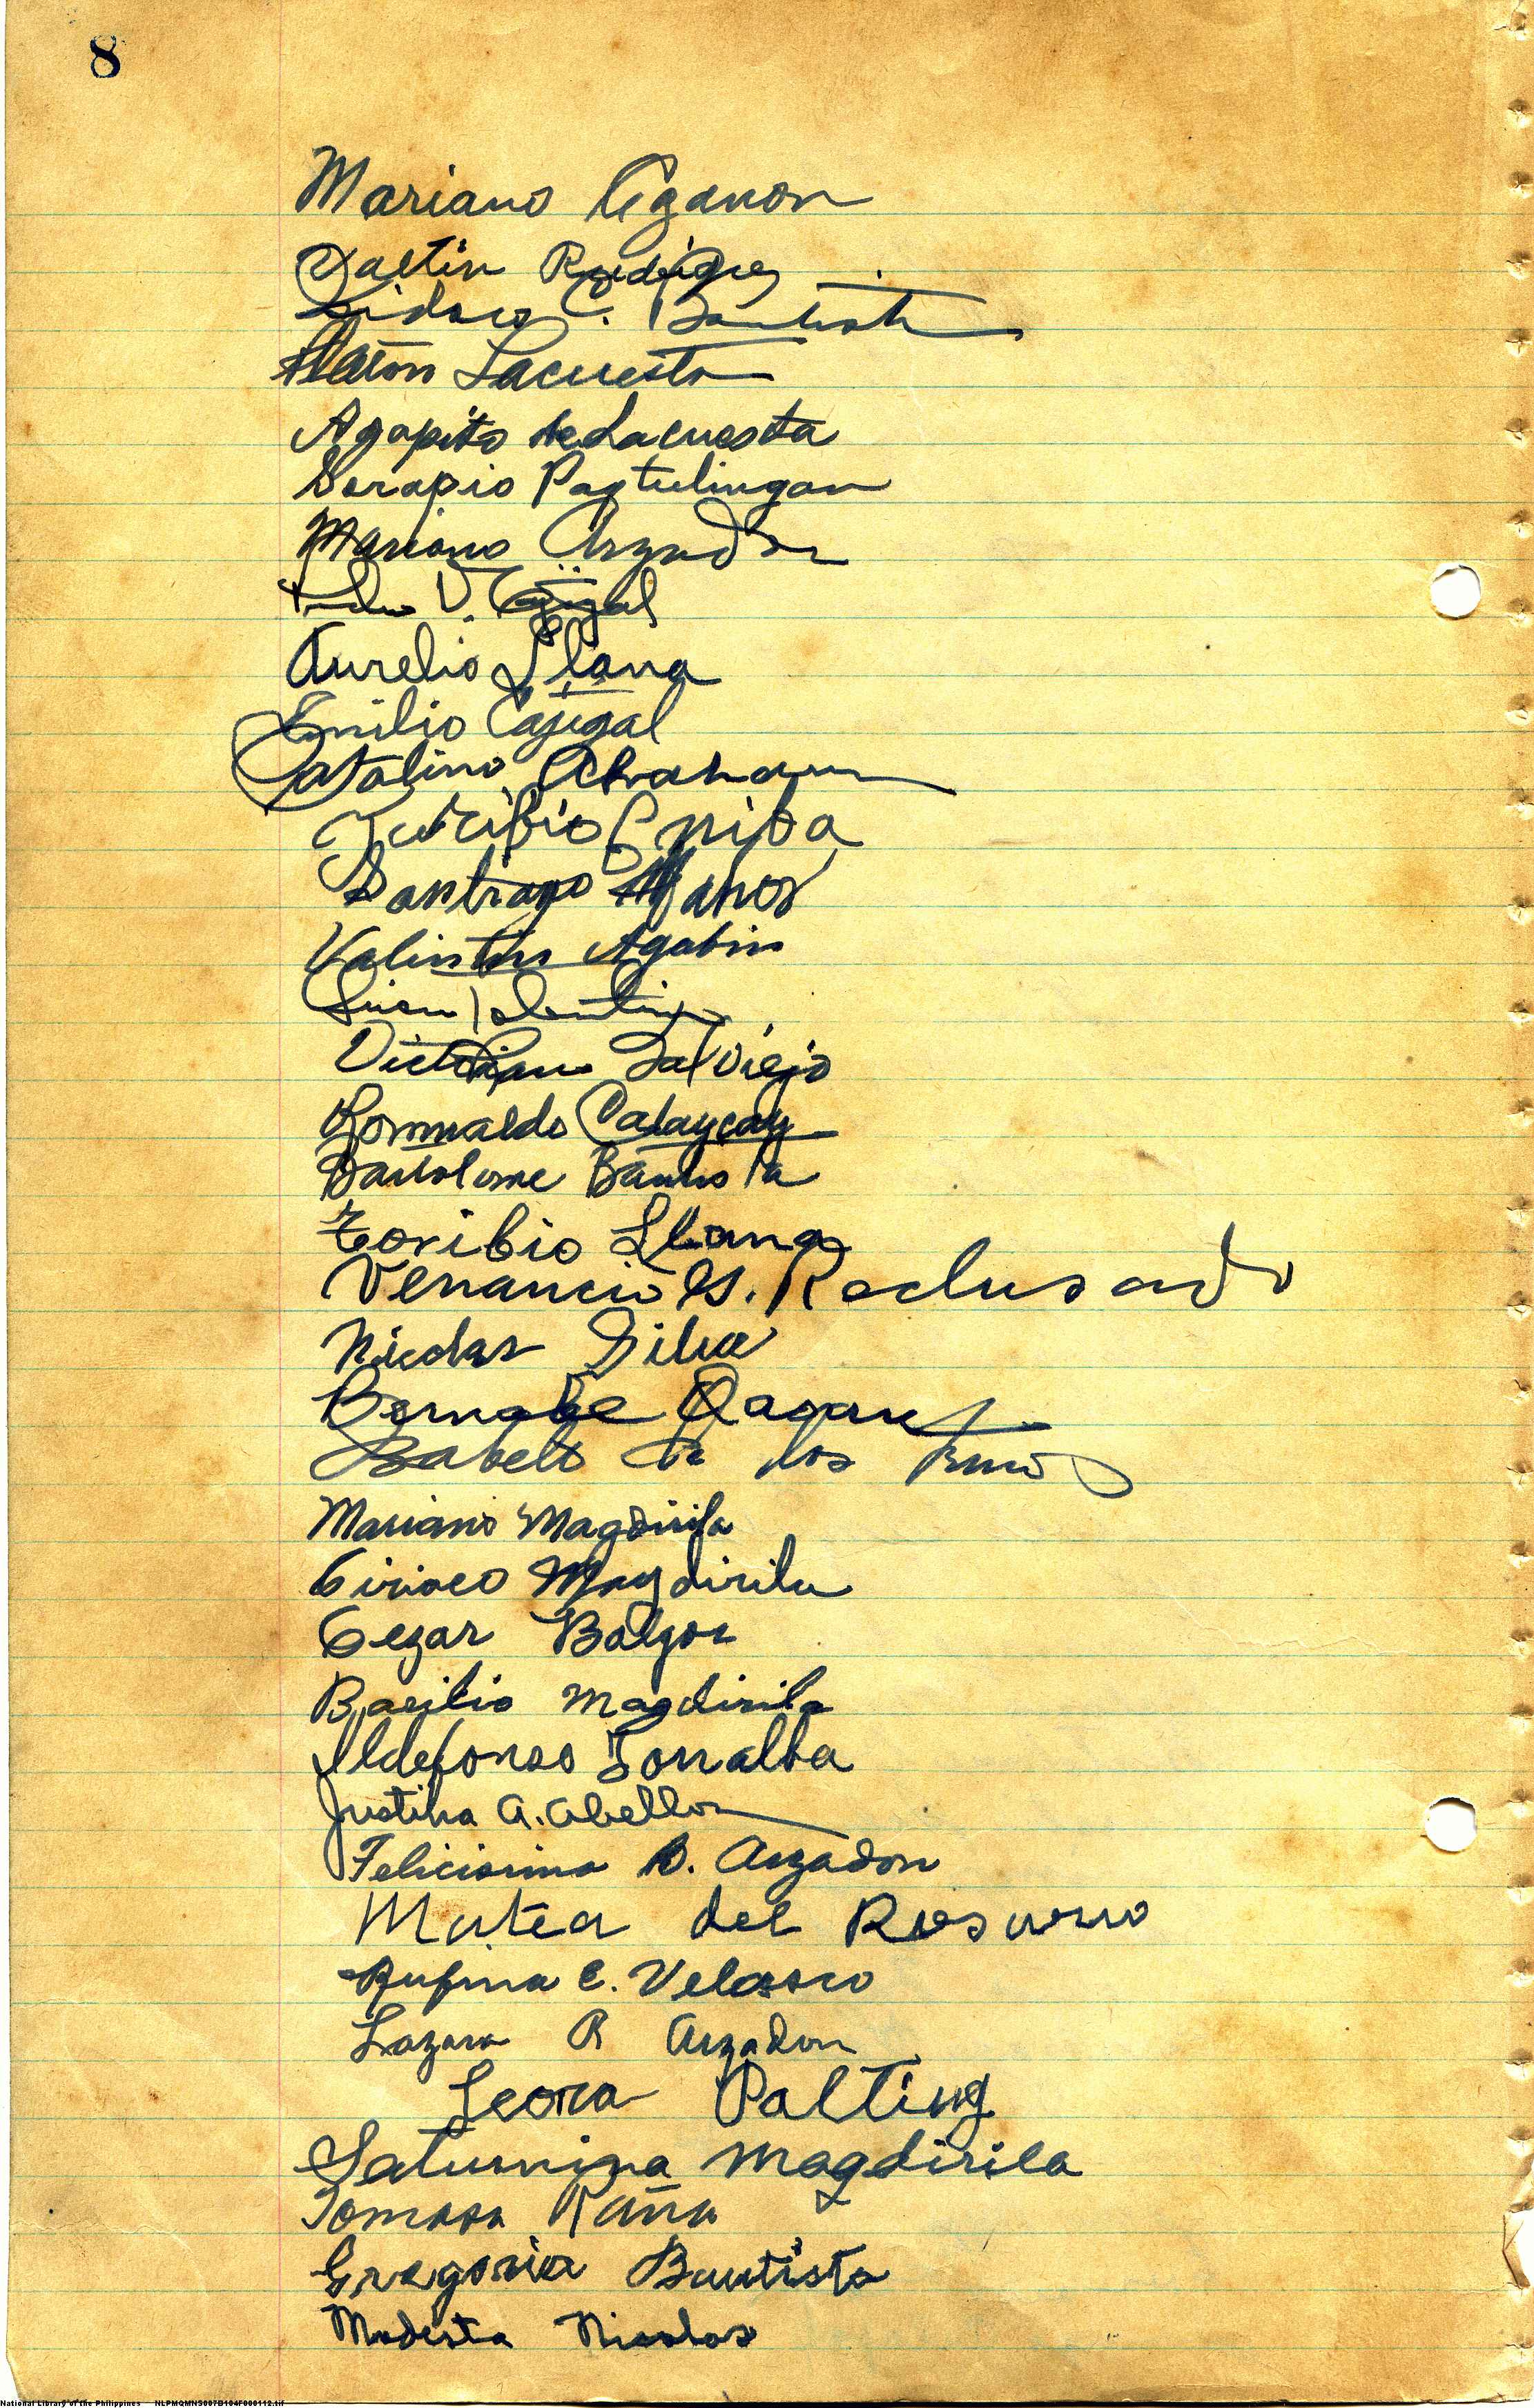 8
Mariano Aganon
Rodriguez
Isidoro C. Bautista
Lacuesta
Agapito de Lacuesta
Serapio Pagtulingan
Mariano Arzadon
V. Cajigal
Aurelio Llana
Emilio Cajigal
Catalino Abraham
Santiago Manos
Valintin Agabin
Victoriano Salviejo
Romualdo Calaycay
Bartolome Bautista
Toribio Llana
Venancio G. Reclusado
Nicolas Silva
Bernabe
Isabelo de los
Mariano Magdirila
Ciriaco Magdirila
Cezar Balgos
Basilio Magdirila
Ildefonso Torralba
Justina A. Abellon
Felicisima B. Arzadon
Matea del Rosario
Rufina C. Velasco
Lazara R Arzadon
Leora Palting
Saturnina Magdirila
Tomasa Raña
Gregoria Bautista
Modesta Nicolas
National Library of the Philippines NLPMQMNS007B104F000112.tif